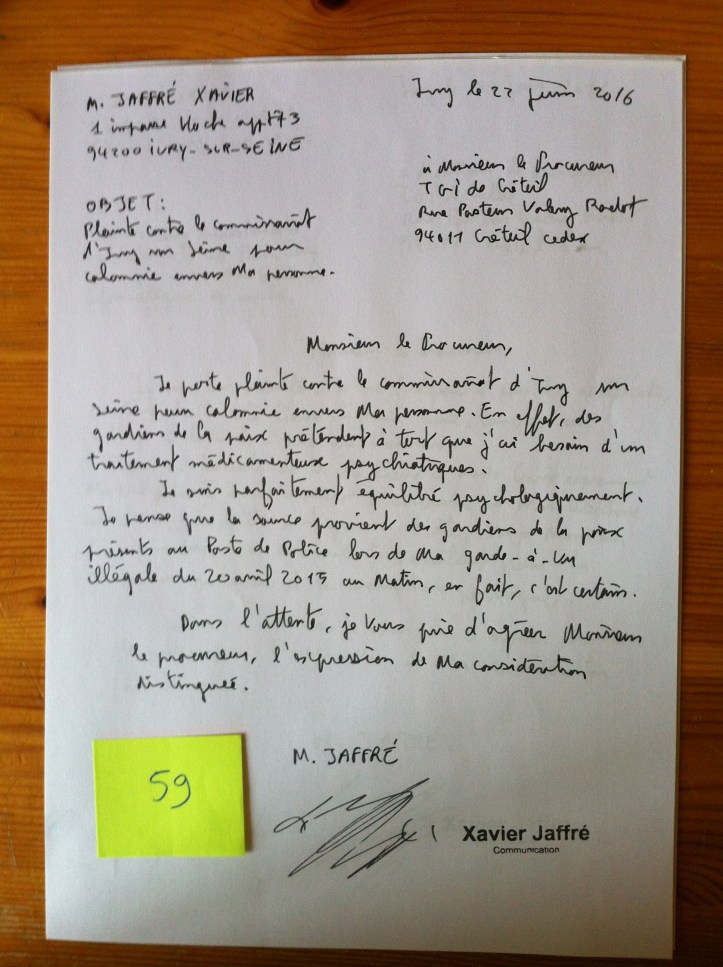 M. JAFFRÉ XAVIER
1 impasse Hoche appt 73
94200 IVRY-SUR-SEINE
Ivry le 22 juin 2016
à Monsieur le Procureur
TGI de Créteil
Rue Pasteur Valery Radot
94011 Créteil cedex
OBJET:
Plainte contre le commissariat
d'Ivry sur Seine pour
calomnie envers Ma personne.
Monsieur le Procureur,
Je porte plainte contre le commissariat d'Ivry sur
Seine pour calomnie envers Ma personne. En effet, des
gardiens de la paix prétendent à tort que j'ai besoin d'un
traitement médicamenteux psychiatriques.
Je suis parfaitement équilibré psychologiquement.
Je pense que la source provient des gardiens de la paix
présents au Poste de Police lors de Ma garde-à-vue
illégale du 20 avril 2015 au Matin, en fait, c'est certain.
Dans l'attente, je Vous prie d'agréer Monsieur
le procureur, l'expression de Ma considération
distinguée.
M. JAFFRÉ
59
Xavier Jaffré
Communication